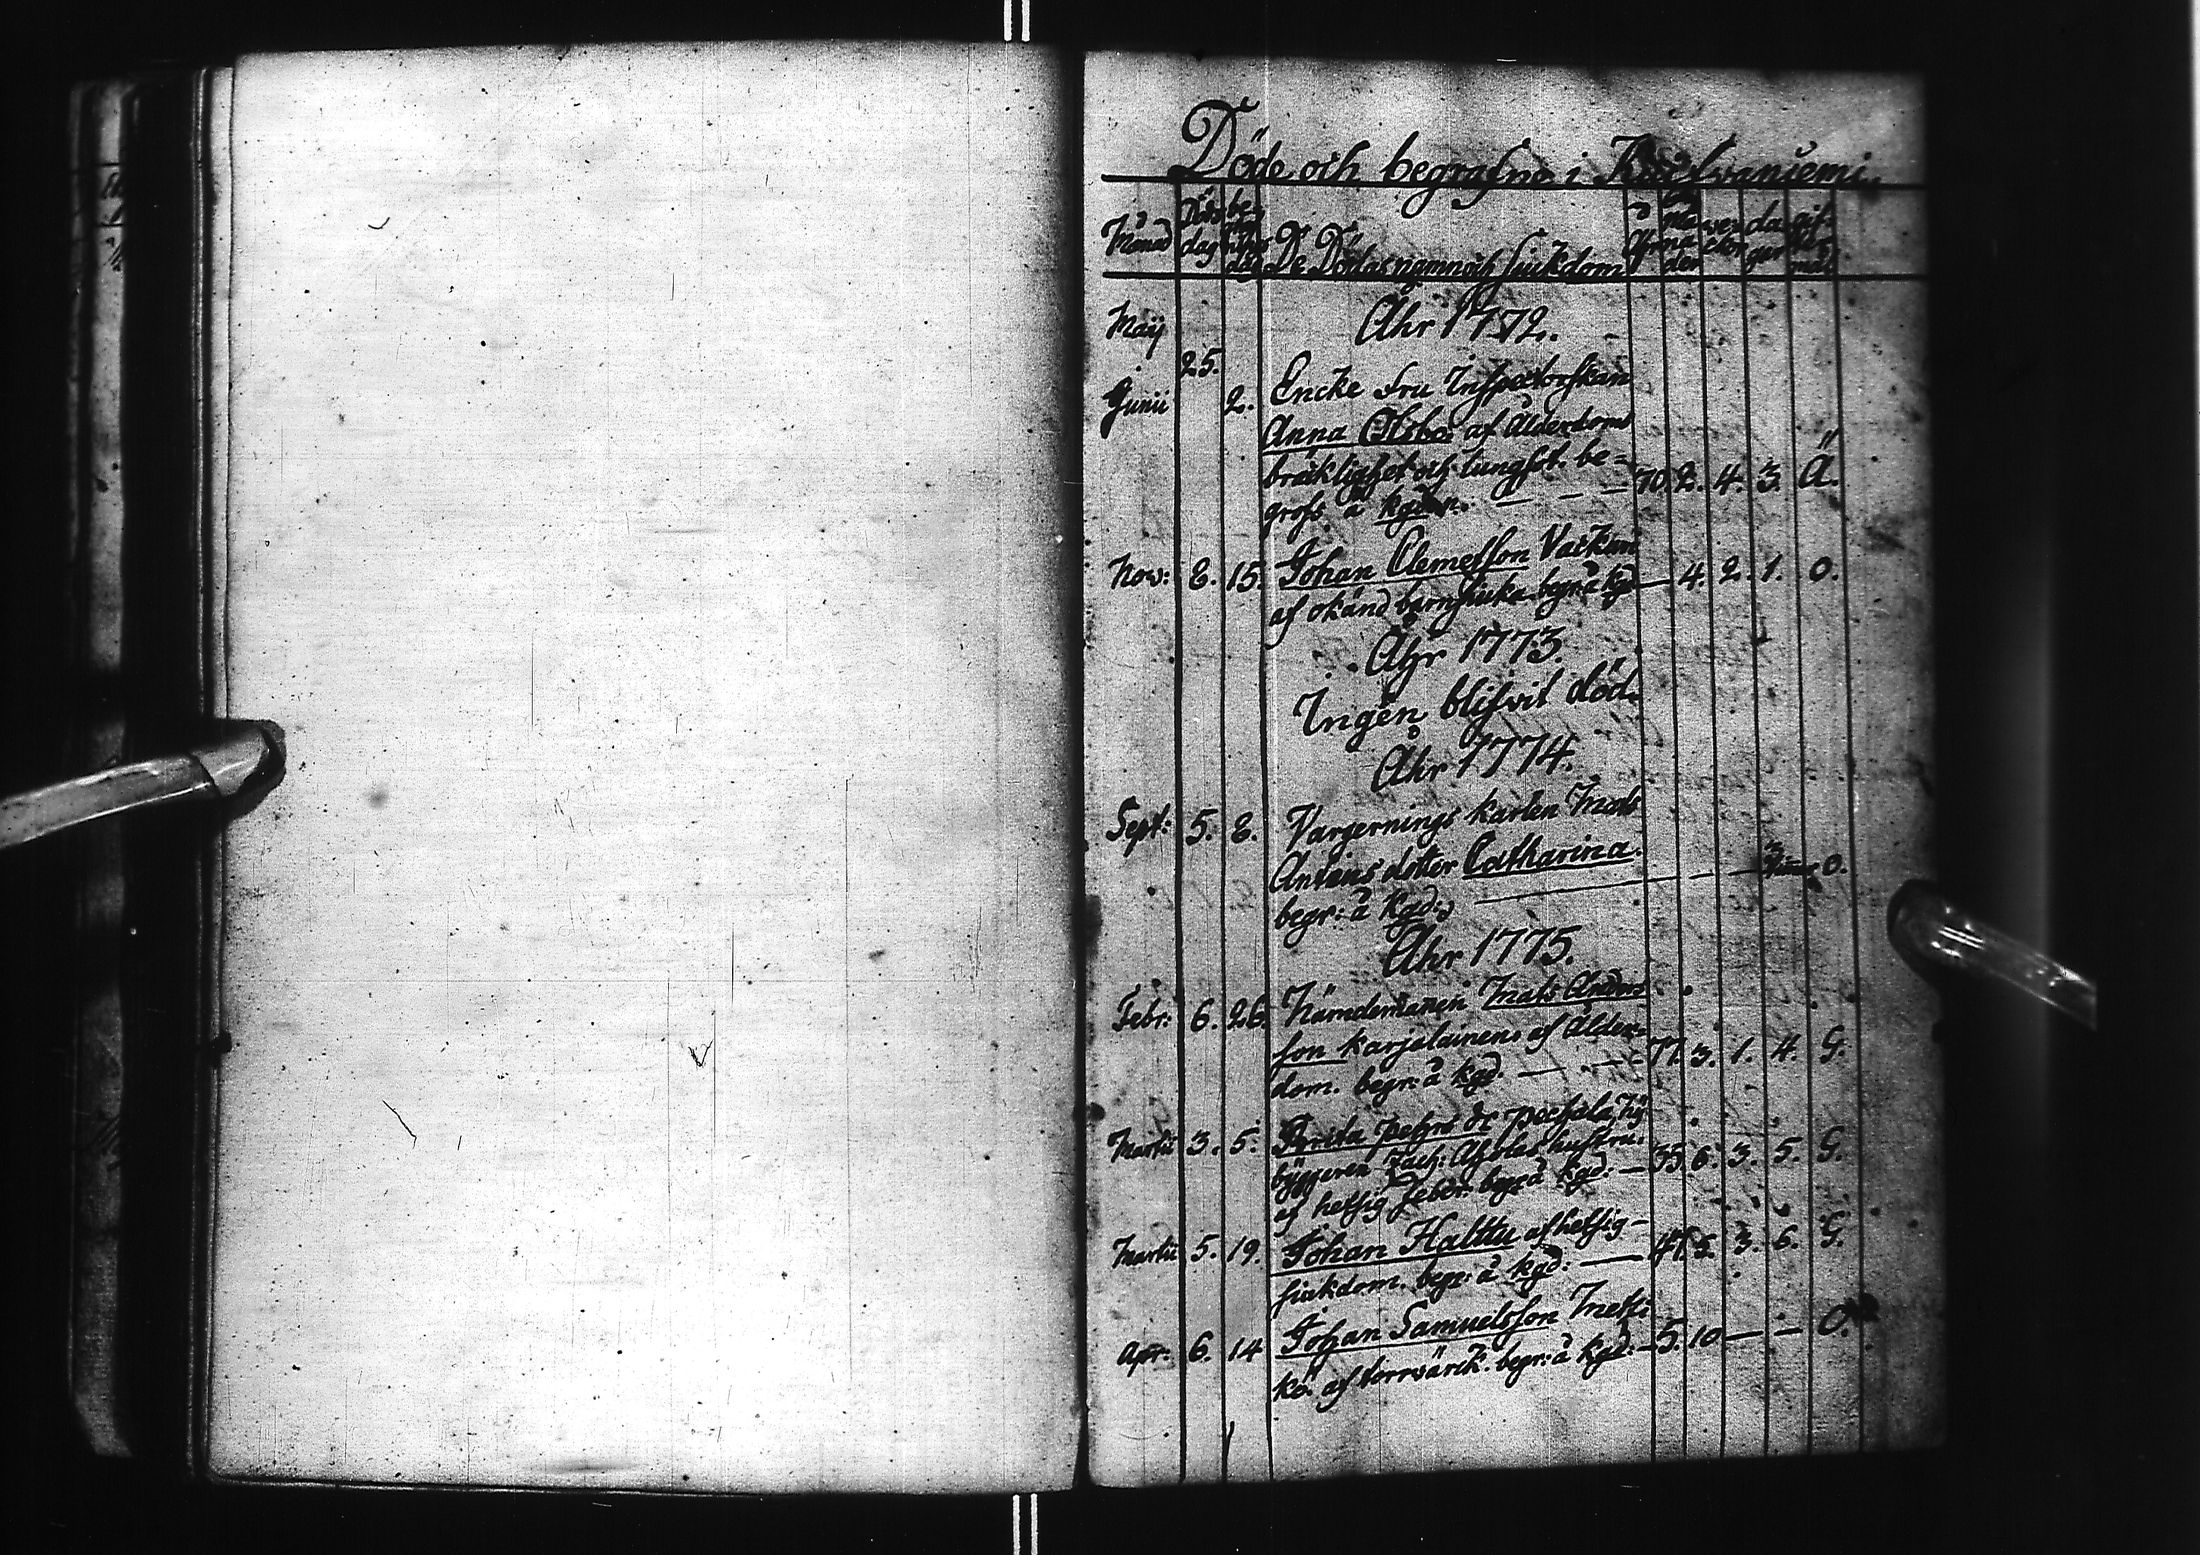 Döde och begrafne i
Månad Döds dag be- dag De Dödas namn och siukdom åhr må na der vec kor da gar
Ahr 1772.
Maij 25.
Junii 2. Encke Fru Inspectorskan
Anna af Ålderdoms
bräklighet och lungsot. be-
grofs å kgdn. — — — 70. 2. 4. 3. Ä.
Nov: 8. 15. Johan Clemetsson
af okänd barnsiuka begr: å kgd — 4. 2. 1. O.
Åhr 1773
Ingen blifvit död.
Åhr 1774.
Sept: 5. 8. Vargernings karlen Mats
dotter Catharina.
begr: å kgd: — — — O.
Ahr 1775.
Febr: 6. 26. Nämdemannen Mats Anders-
son karjalainen. af Ålder-
dom. begr: å kgd. — — 77. 3. 1. 4. G.
Martii 3. 5. Brita pehrs dr Ny
byggeren Zach: hustru.
af hetsig feber. begr: å kgd: — 35. 6. 3. 5. G.
Martii 5. 19. Johan Halttu af hetsig-
siukdom. begr: å kgd: — 47. 5. 3. 6. G.
Apr: 6. 14 Johan Samuelsson
kö. af torrvärck. begr: å kgd: — 5. 10 — — O.